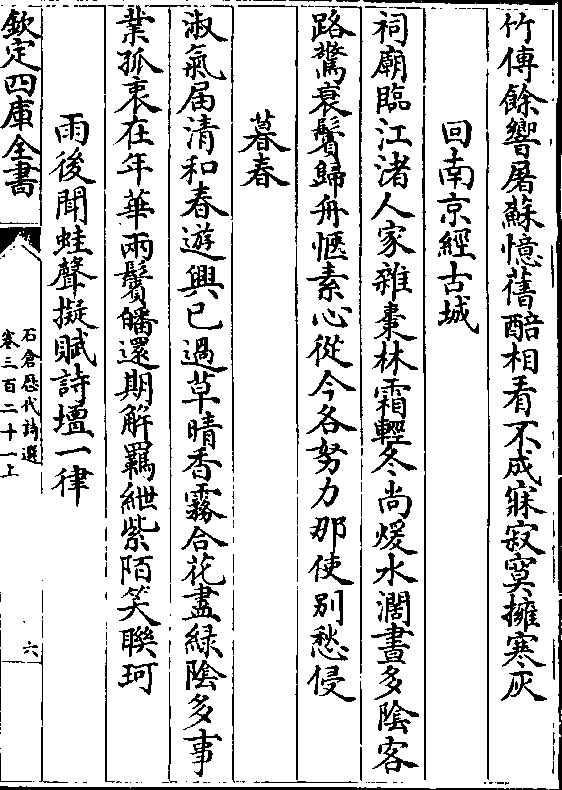 竹傳餘響屠蘇憶舊醅相看不成寐寂寞擁寒灰
回南京經古城
祠廟臨江渚人家雜棗林霜輕冬尚煖水濶晝多陰客
路驚衰鬢歸舟愜素心從今各努力那使別愁侵
暮春
淑氣届清和春遊興已過草晴香霧合花盡緑陰多事
業孤衷在年華兩鬢皤還期解羈紲紫陌笑聯珂
雨後聞蛙聲擬賦詩壇一律
欽定四庫全書
石倉歷代詩選
卷三百二十一上
六